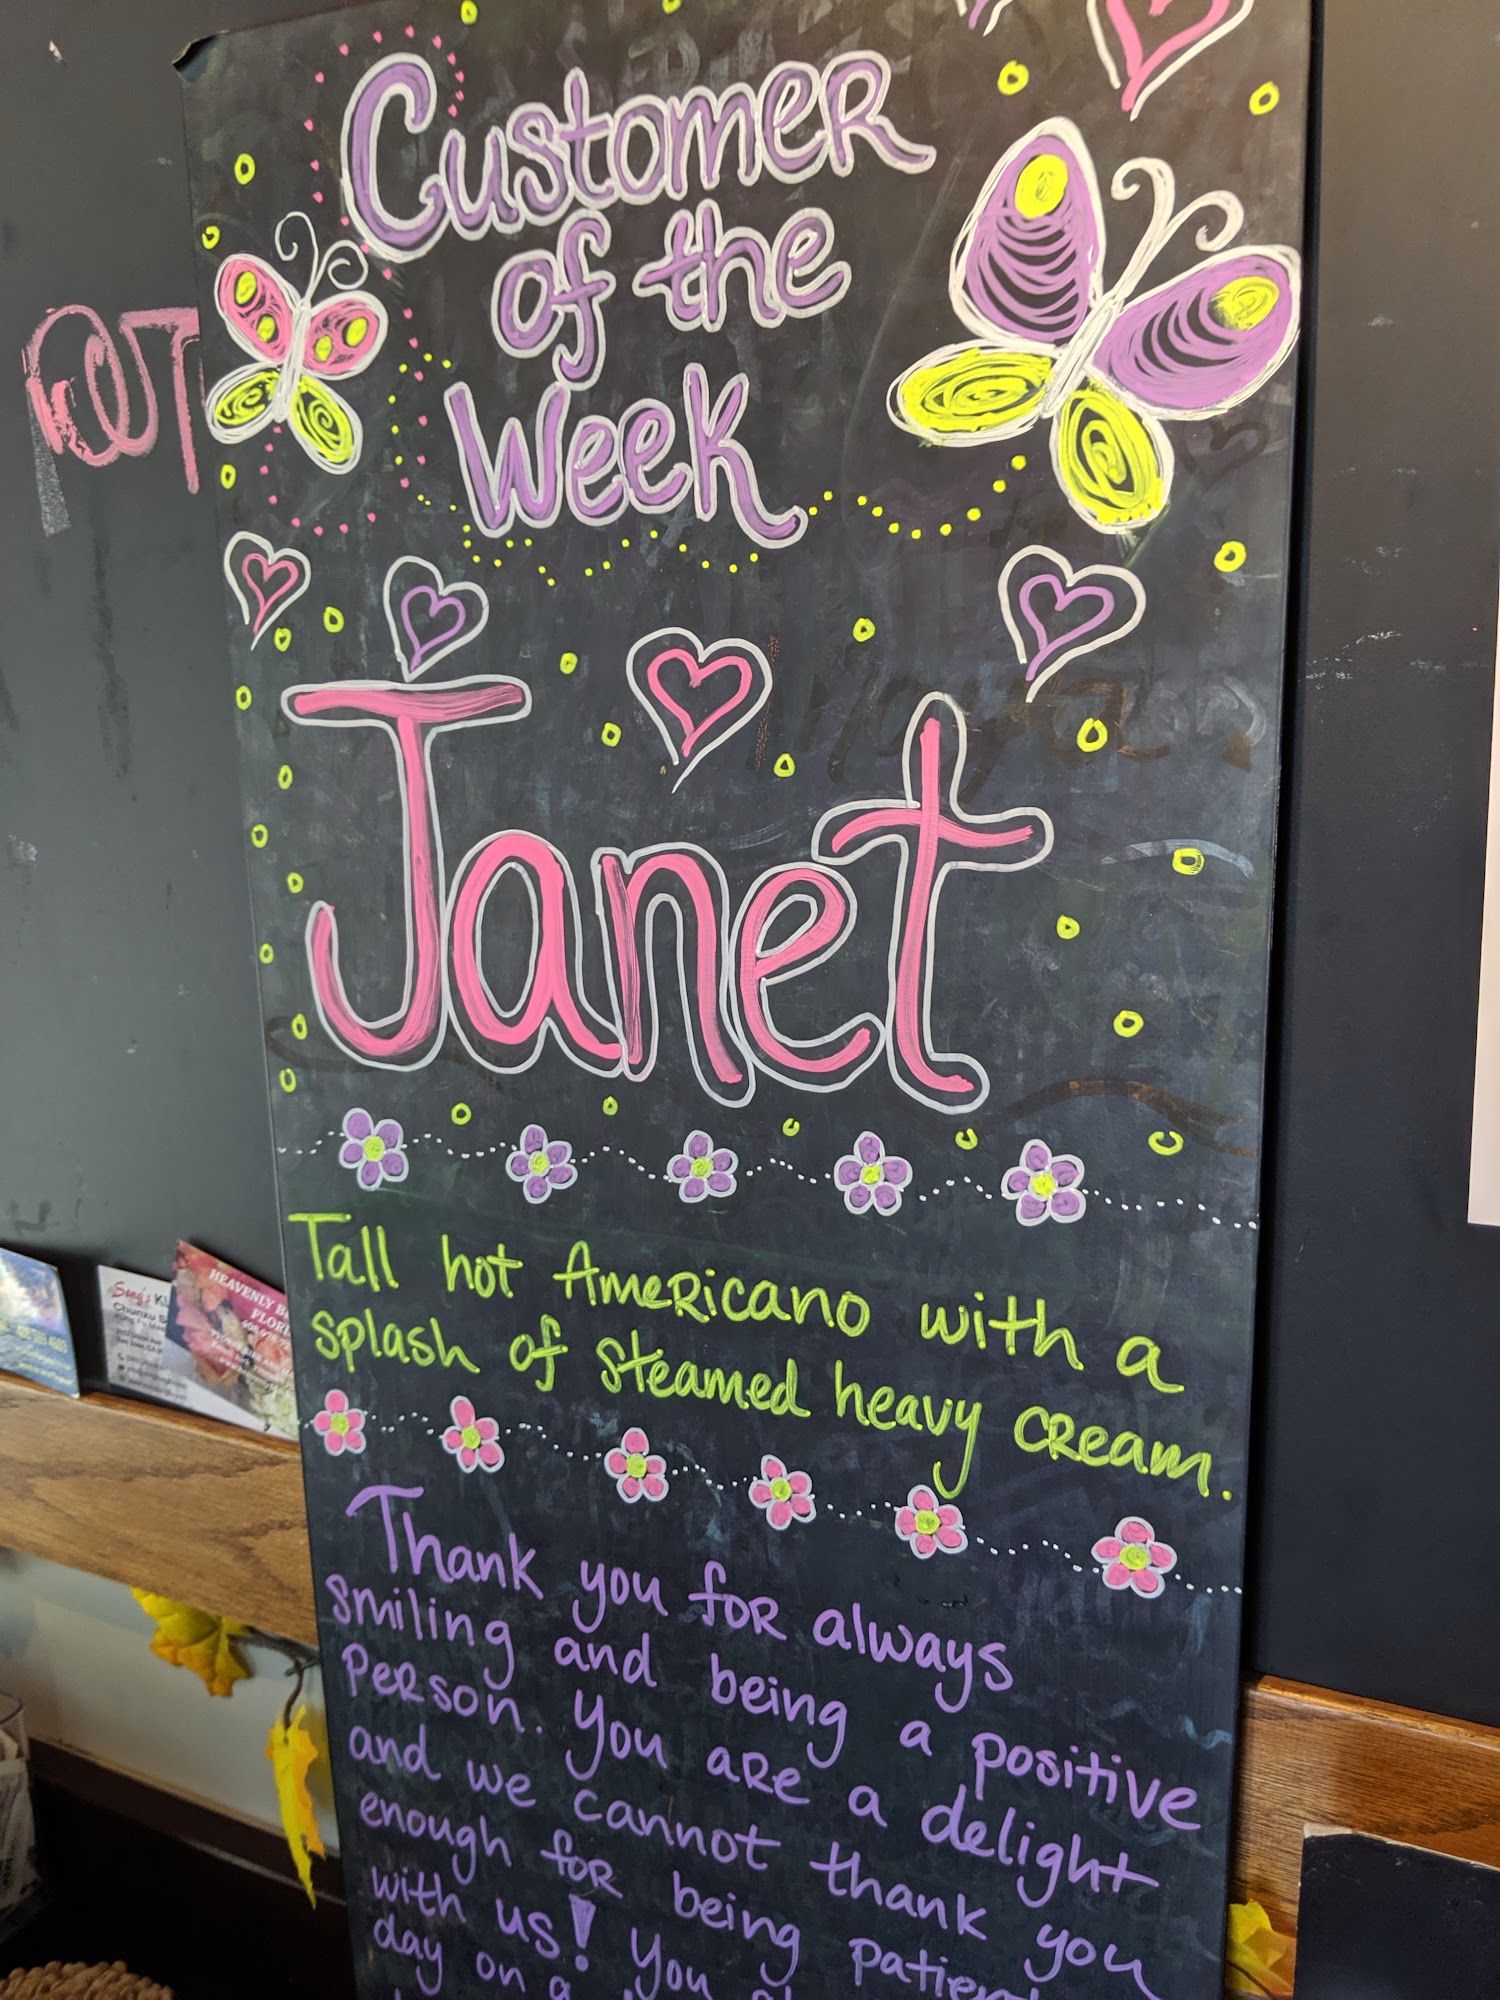 Customer
of the
Week
OUT
Janet
Tall hot Americano with a
splash of steamed heavy cream.
Thank you for always
smiling and being a positive
person. You are a delight
and we cannot thank you
enough for being
with us! You
day on a
HEAVENLY
FLORI
Chunxu